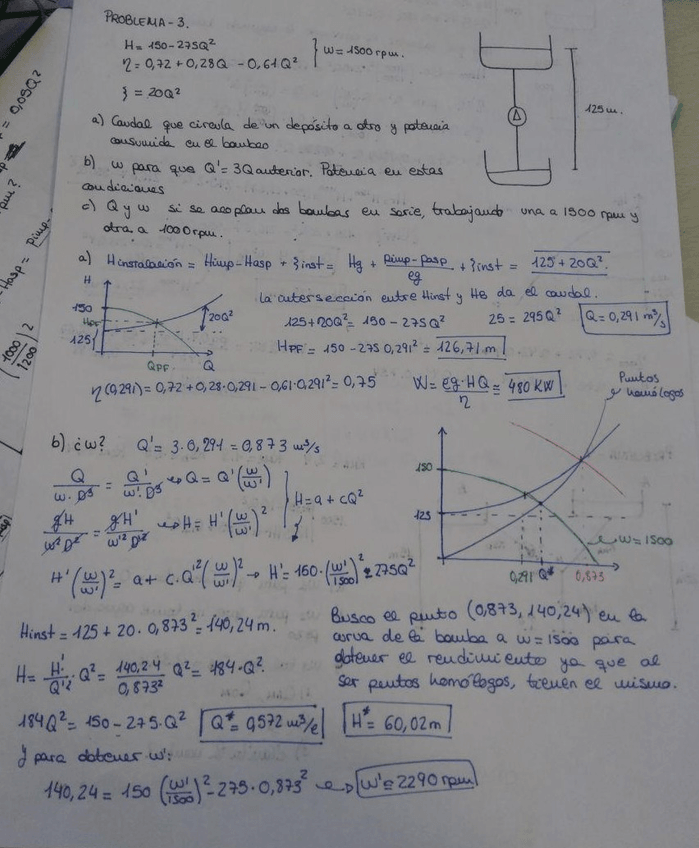 PROBLEMA-3.
H = 150-275Q²
η = 0,72 + 0,28Q - 0,61Q²
} w = 1500 rpm.
ξ = 20Q²
125 m.
a) Caudal que circula de un depósito a otro y potencia
consumida en el bombeo
b) w para que Q' = 3Q anterior. Potencia en estas
condiciones
c) Q y w si se acoplan dos bombas en serie, trabajando una a 1500 rpm y
otra a 1000 rpm.
a) Hinstalación = Himp - Hasp + ξinst = Hg + (Pimp - Pasp)/ρg + ξinst = 125 + 20Q².
La intersección entre Hinst y HB da el caudal.
125 + 20Q² = 150 - 275Q² 25 = 295Q² Q = 0,291 m³/s
HPF = 150 - 275 0,291² = 126,71 m
H
150
HPF
125
20Q²
QPF Q
η(0,291) = 0,72 + 0,28·0,291 - 0,61·0,291² = 0,75 W = ρg·HQ/η ≅ 480 KW
Puntos
homólogos
150
125
w = 1500
0,291 Q* 0,873
b) ¿w? Q' = 3·0,291 = 0,873 m³/s
Q/(w·D³) = Q'/(w'·D³) → Q = Q'(w/w')
gH/(w²D²) = gH'/(w'²D²) → H = H'(w/w')²
} H = a + cQ²
H'(w/w')² = a + c·Q'²(w/w')² → H' = 150·(w'/1500)² - 275Q²
Hinst = 125 + 20·0,873² = 140,24 m.
H = H'/Q'²·Q² = 140,2·4/0,873² Q² = 184·Q².
184Q² = 150 - 275·Q² Q* = 0,572 m³/s H* = 60,02 m
Busco el punto (0,873, 140,24) en la
curva de la bomba a w = 1500 para
obtener el rendimiento ya que al
ser puntos homólogos, tienen el mismo.
Y para obtener w':
140,24 = 150 (w'/1500)² - 275·0,873² → w' ≅ 2290 rpm
= 0,05Q²
rpm?
Hasp = Pimp
(1000/1200)²